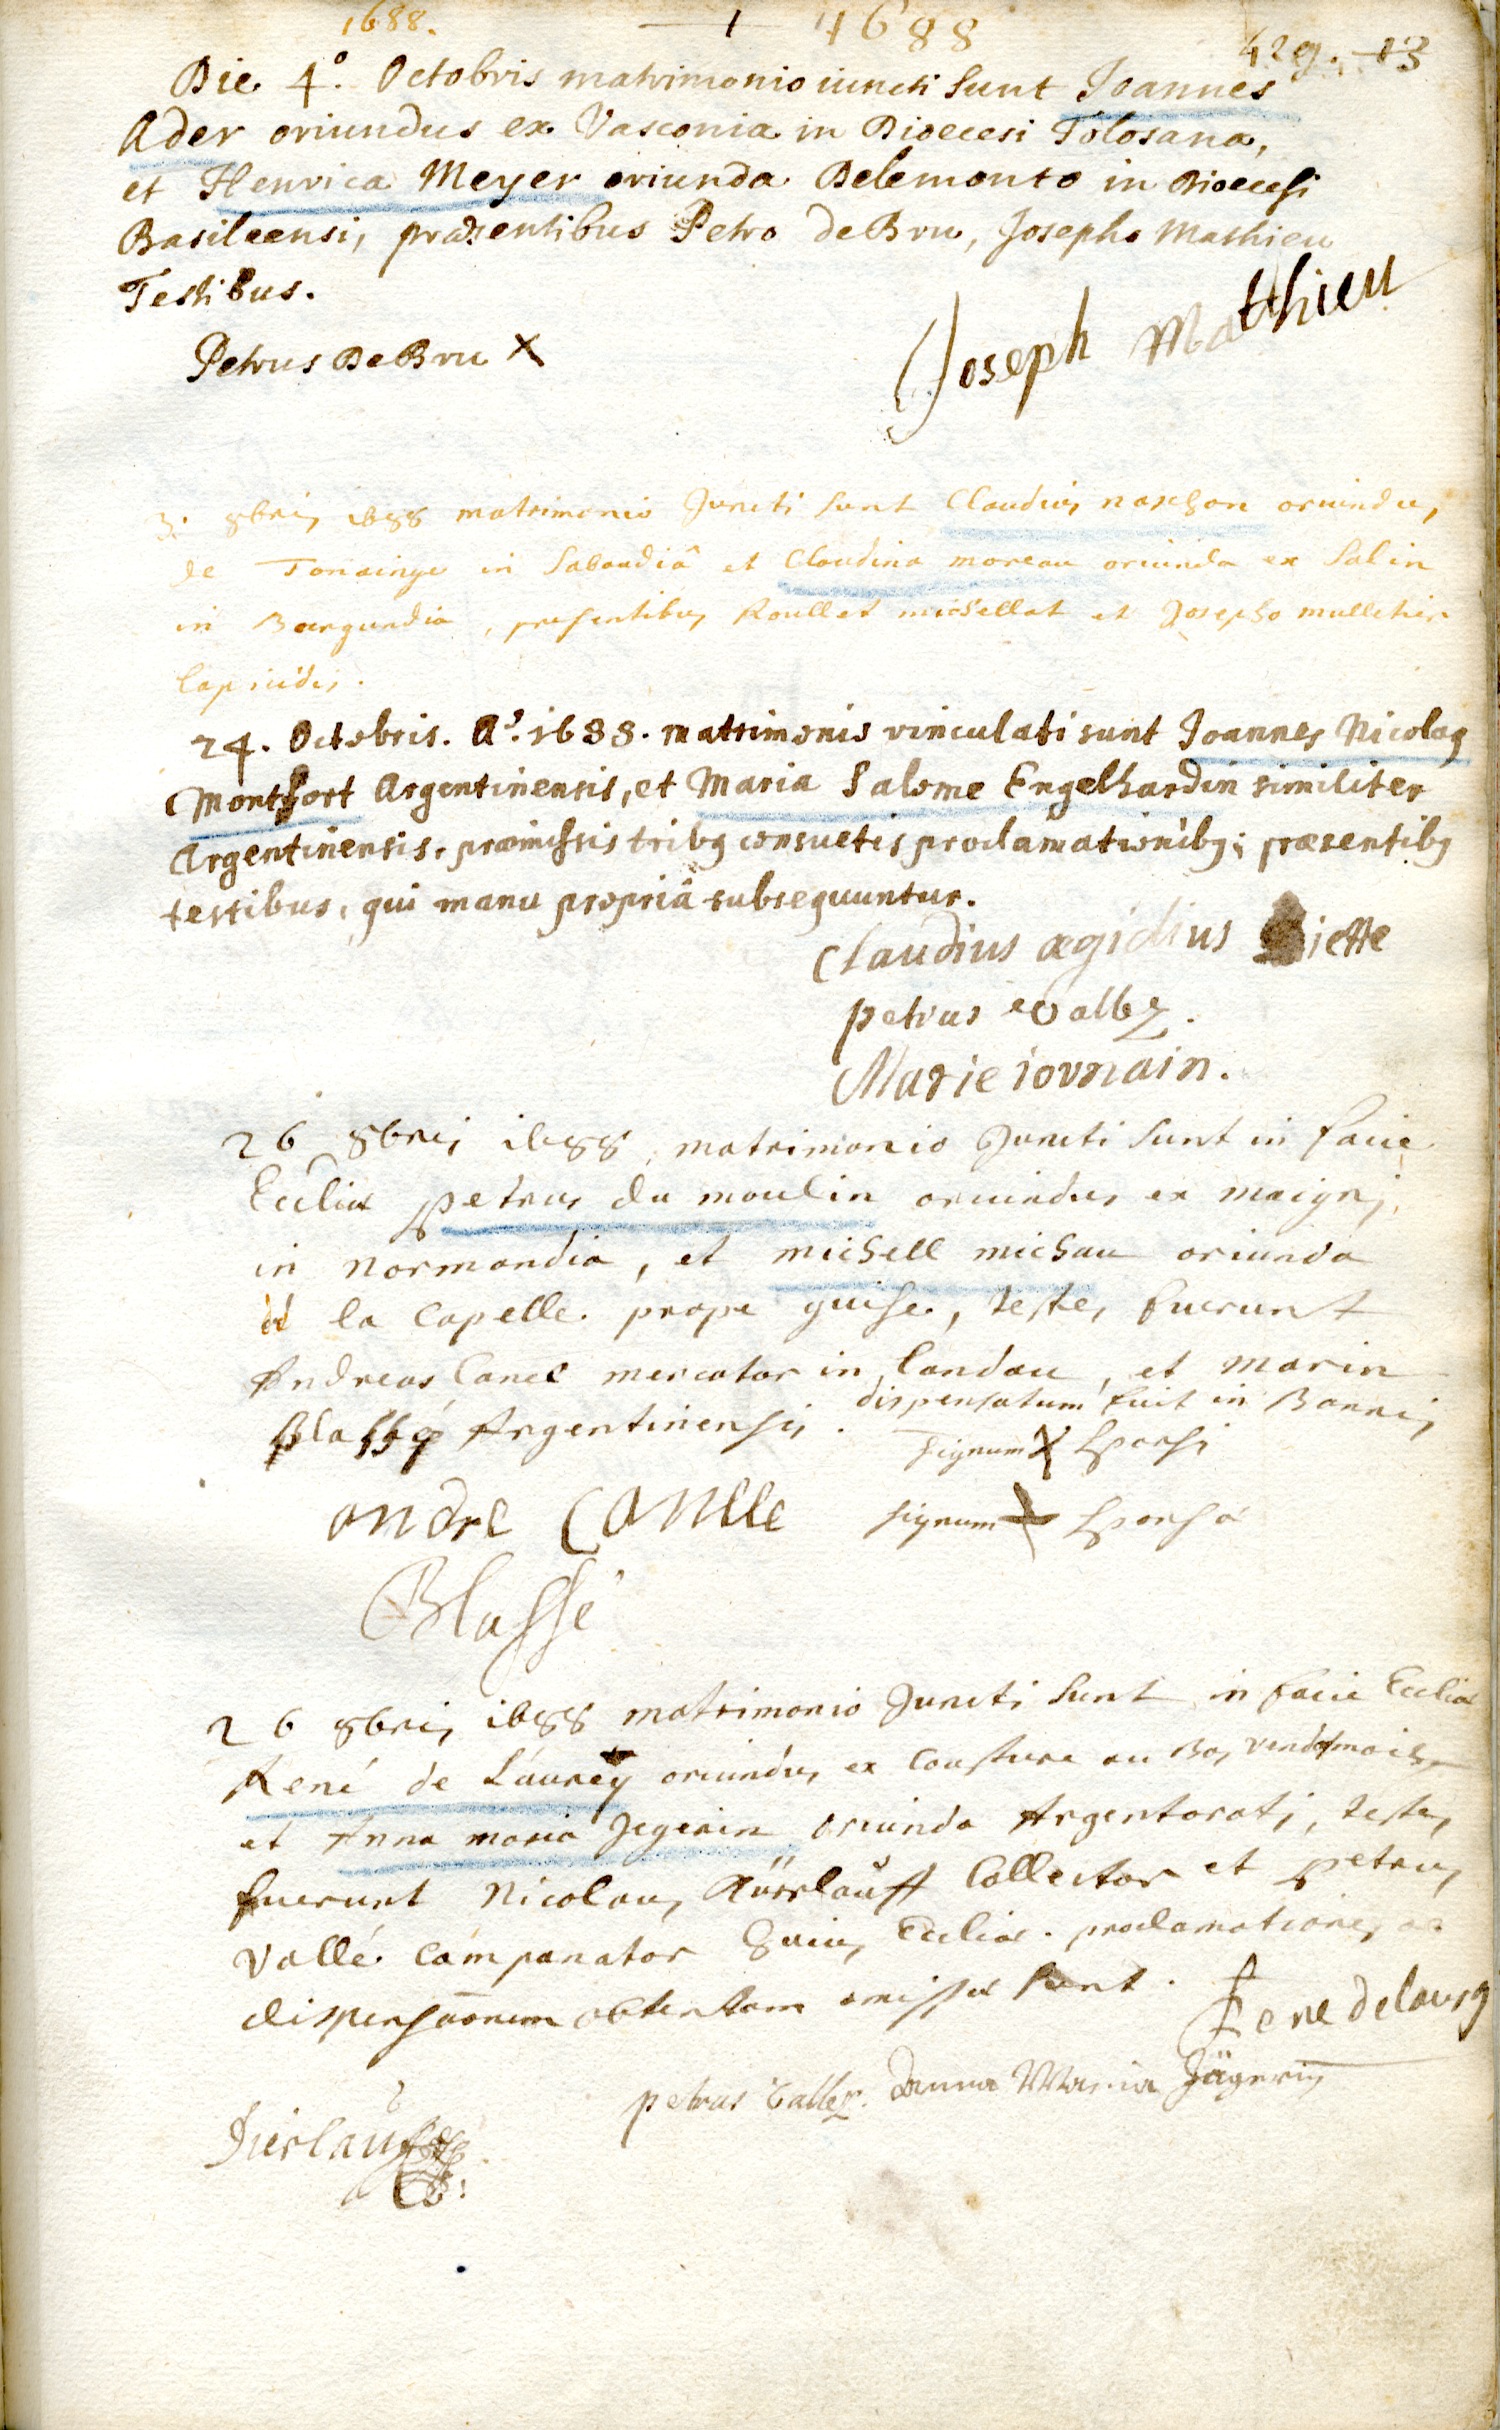 1688. 1 1688
429. 13
Die 4.° Octobris matrimonio iuncti sunt Joannes
Ader oriundus ex Vasconia in Dioecesi Tolosana,
et Henrica Meyer oriunda Delemonto in Dioecesi
Basileensi, præsentibus Petro deBru, Josepho Mathieu
Testibus.
Petrus DeBru X
Joseph Matthieu
3. 8bris 1688 matrimonio Juncti sunt Claudius naschon oriundus
de Tonainge in Sabaudiâ et Claudina moreau oriunda ex Salin
in Burgundia, presentibus Roullet michellat et Josepho mulletier
24. Octobris. A.° 1688. matrimonio vinculati sunt Joannes Nicolaq
Montfort Argentinensis, et Maria Salome Engelhardin similiter
Argentinensis, præmissis tribq consuetis proclamationibq; præsentibq
testibus, qui manu propriâ subsequuntur.
Claudius ægidius
petrus vallez.
Marie iournain.
26 8bris 1688 matrimonio Juncti sunt in facie
Eccliæ petrus du moulin oriundus ex maigni
in normandia, et michell michau oriunda
la Capelle prope guise, testes fuerunt
Andreas Canel mercator in Landau, et marin
Blassé Argentinensis. dispensatum fuit in Bannis
signum X sponsi
andre CANelle signum X sponsæ
Blassé
26 8bris 1688 matrimonio Juncti sunt in facie Eccliæ
René de Laurey oriundus ex Cousture au Bas vendosmois
et Anna maria Jegerin oriunda Argentorati, testes
fuerunt Nicolaus Collector et petrus
vallé Campanator huius Eccliæ. proclamationes ob
dispensãonem obtentam omissæ sunt.
Rene delaurey
petrus vallez. Anna Maria Jägerin